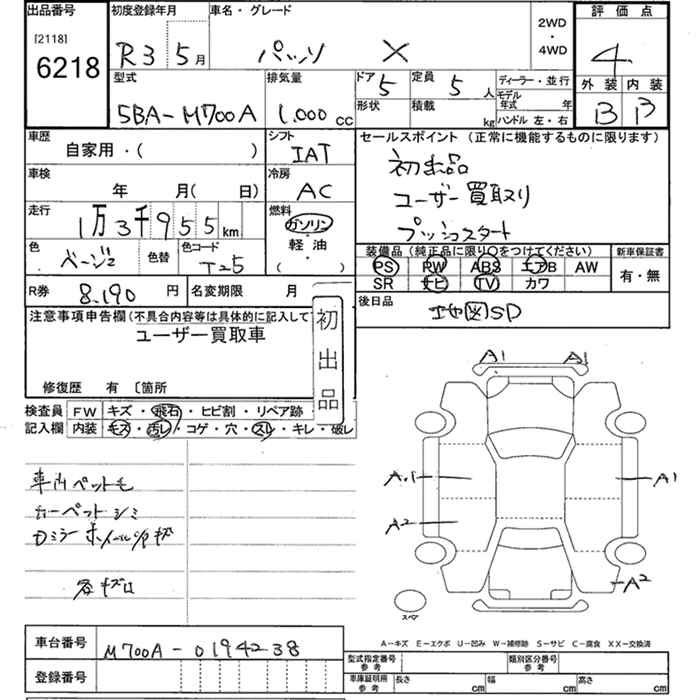 出品番号 初度登録年月 車名・グレード 2WD・4WD 評価点
[2118]
6218
R3 5月 パッソ X 4
型式 排気量 ドア 定員 ディーラー・並行 外装 内装
5BA-M700A 1,000cc 5 5人 モデル年式 年 B B
形状 積載 kg ハンドル 左・右
車歴 シフト セールスポイント(正常に機能するものに限ります)
自家用・( ) IAT 初出品
車検 冷房
年 月( 日) AC ユーザー買取り
走行 燃料
1万3千955km ガソリン プッシュスタート
色 色替 色コード ・軽油・ 装備品(純正品に限り○をつけてください) 新車保証書
ベージュ T-5 ( ) PS PW ABS エアB AW 有・無
SR ナビ TV カワ
R券 8,190円 名変期限 月 後日品
注意事項申告欄(不具合内容等は具体的に記入して 初出品 地図SD
ユーザー買取車
修復歴 有 〔箇所
検査員記入欄 FW キズ・飛石・ヒビ割・リペア跡・
内装 キズ・汚レ・コゲ・穴・スレ・キレ・破レ
A1 A1
A.1 A1
車内ペット毛
A2
カーペットシミ
Dミラー ホイールC/P キズ
A2
各キズ
スペア
A-キズ E-エクボ U-凹み W-補修跡 S-サビ C-腐食 XX-交換済
車台番号 M700A-0194238 型式指定番号 参考 類別区分番号 参考
登録番号 車庫証明用 参考 長さ cm 幅 cm 高さ cm